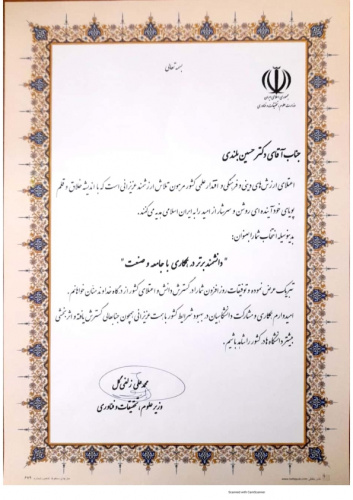 بسمه تعالی
جمهوری اسلامی ایران
وزارت علوم، تحقیقات و فناوری
جناب آقای دکتر حسین بلندی
اعتلای ارزش‌های دینی و فرهنگی و اقتدار علمی کشور مرهون تلاش ارزشمند عزیزانی است که با اندیشه خلاق و قلم
پویای خود آینده‌ای روشن و سرشار از امید را به ایران اسلامی هدیه می‌کنند.
بدینوسیله انتخاب شما را بعنوان:
"دانشمند برتر در همکاری با جامعه و صنعت"
تبریک عرض نموده و توفیقات روزافزون شما را در گسترش دانش و اعتلای کشور از درگاه خداوند منان خواهانم.
امیدوارم همکاری و مشارکت دانشگاهیان در بهبود شرایط کشور با همت عزیزانی همچون جنابعالی گسترش یافته و اثربخشی
بیشتر دانشگاه‌ها در کشور را شاهد باشیم.
محمدعلی زلفی گل
وزیر علوم، تحقیقات و فناوری
Scanned with CamScanner